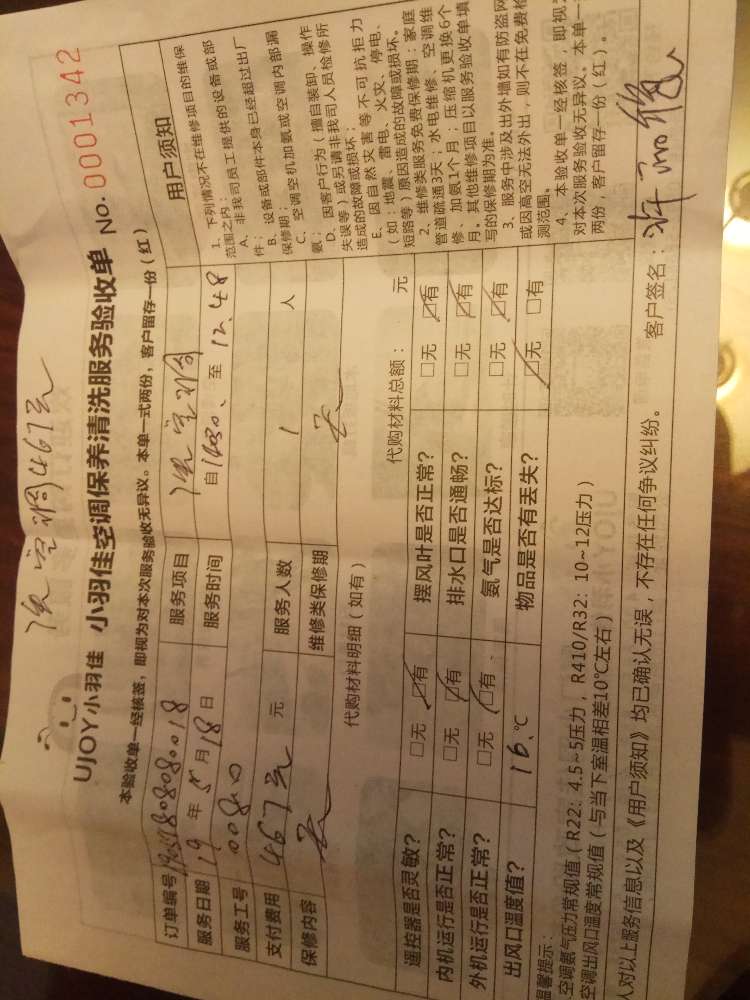 洗空调467元
UJOY小羽佳 小羽佳空调保养清洗服务验收单 No. 0001342
本验收单一经核签，即视为对本次服务验收无异议。本单一式两份，客户留存一份（红）
订单编号
服务项目 洗空调
服务日期 19 年 5 月 18 日
服务时间 自 至 12.48
服务工号 00800
支付费用 467元 元
服务人数 1 人
保修内容 无
维修类保修期 无
用户须知
1、下列情况不在维修项目的维保
范围之内：
A、非我司员工提供的设备或部
件；
B、设备或部件本身已经超过出厂
保修期；
C、空调空机加氨或空调内部漏
氨；
D、因客户行为（擅自装卸、操作
失误等）或另请非我司人员检修所
造成的故障或损坏；
E、因自然灾害等不可抗拒力
（如：地震、雷电、火灾、停电、
短路等）原因造成的故障或损坏。
2、维修类服务免费保修期：家庭
管道疏通3天；水电维修、空调维
修、加氨1个月；压缩机更换6个
月。其他维修项目以服务验收单填
写的保修期为准。
3、服务中涉及出外墙如有防盗网
或因高空无法外出，则不在免费检
测范围。
4、本验收单一经核签，即视为
对本次服务验收无异议。本单一式
两份，客户留存一份（红）。
代购材料明细（如有）
代购材料总额： 元
遥控器是否灵敏？ □无 ☑有 摆风叶是否正常？ □无 ☑有
内机运行是否正常？ □无 ☑有 排水口是否通畅？ □无 ☑有
外机运行是否正常？ □无 ☑有 氨气是否达标？ □无 ☑有
出风口温度值？ 16.℃ 物品是否有丢失？ ☑无 □有
温馨提示：
空调氨气压力常规值（R22：4.5~5压力，R410/R32：10~12压力）
空调出风口温度常规值（与当下室温相差10℃左右）
人对以上服务信息以及《用户须知》均已确认无误，不存在任何争议纠纷。
客户签名：